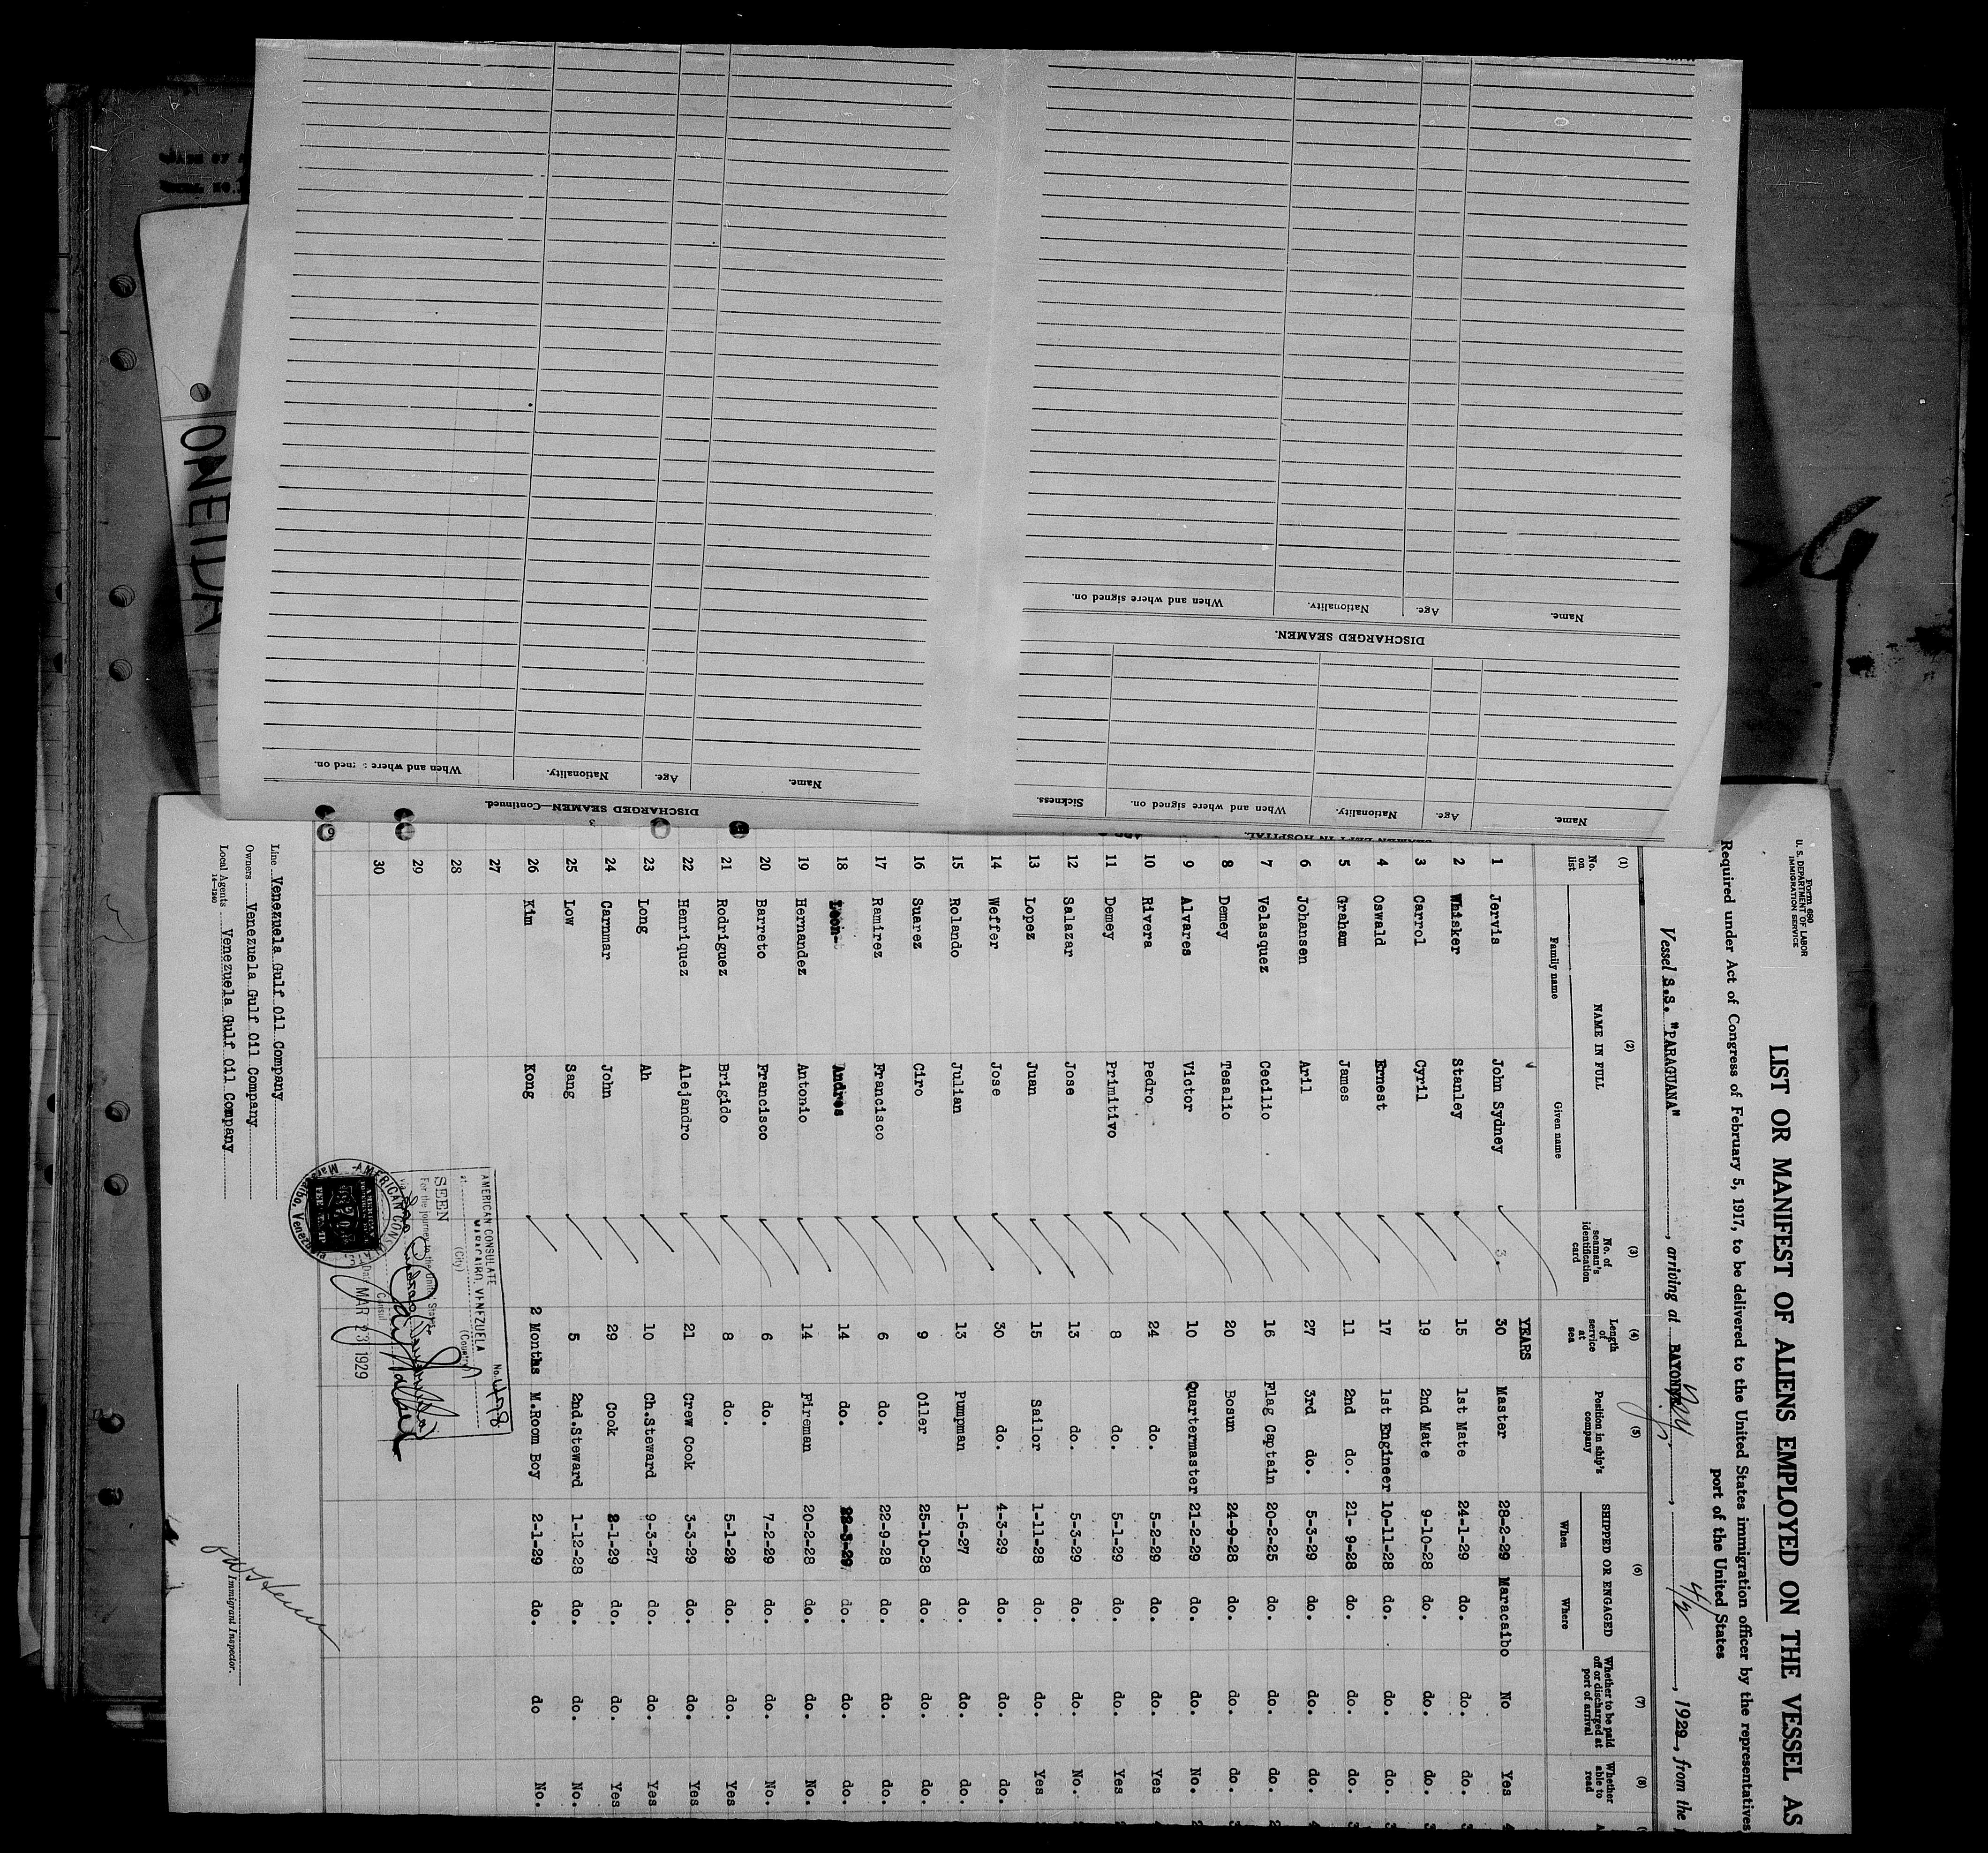 ONEIDA
SEAMEN LEFT IN HOSPITAL.
Name. Age. Nationality. When and where signed on. Sickness.
DISCHARGED SEAMEN.
Name. Age. Nationality. When and where signed on.
3
DISCHARGED SEAMEN—Continued.
Name. Age. Nationality. When and where signed on.
Form 680
U. S. DEPARTMENT OF LABOR
IMMIGRATION SERVICE
LIST OR MANIFEST OF ALIENS EMPLOYED ON THE VESSEL AS
Required under Act of Congress of February 5, 1917, to be delivered to the United States immigration officer by the representatives
port of the United States
Vessel S.S. "PARAGUANA", arriving at BAYONNE N.J., 4/2, 1929, from the
(1) (2) (3) (4) (5) (6) (7) (8)
No. on list NAME IN FULL Family name Given name No. of seaman's identification card Length of service at sea Position in ship's company SHIPPED OR ENGAGED When Where Whether to be paid off or discharged at port of arrival Whether able to read
YEARS
1 Jervis John Sydney 3. 30 Master 28-2-29 Maracaibo No Yes
2 Whisker Stanley 15 1st Mate 24-1-29 do. do. do.
3 Carrol Cyril 19 2nd Mate 9-10-28 do. do. do.
4 Oswald Ernest 17 1st Engineer 10-11-28 do. do. do.
5 Graham James 11 2nd do. 21- 9-28 do. do. do.
6 Johansen Aril 27 3rd do. 5-3-29 do. do. do.
7 Velasquez Cecilio 16 Flag Captain 20-2-25 do. do. do.
8 Demey Tesalio 20 Bosun 24-9-28 do. do. do.
9 Alvares Victor 10 Quartermaster 21-2-29 do. do. No.
10 Rivera Pedro 24 do. 5-2-29 do. do. Yes
11 Demey Primitivo 8 do. 5-1-29 do. do. Yes
12 Salazar Jose 13 do. 5-3-29 do. do. No.
13 Lopez Juan 15 Sailor 1-11-28 do. do. Yes
14 Weffer Jose 30 do. 4-3-29 do. do. do.
15 Rolando Julian 13 Pumpman 1-6-27 do. do. do.
16 Suarez Ciro 9 Oiler 25-10-28 do. do. do.
17 Ramirez Francisco 6 do. 22-9-28 do. do. do.
18 Leon Andres 14 do. 22-3-29 do. do. do.
19 Hernandez Antonio 14 Fireman 20-2-28 do. do. No.
20 Barreto Francisco 6 do. 7-2-29 do. do. No.
21 Rodriguez Brigido 8 do. 5-1-29 do. do. Yes
22 Henriquez Alejandro 21 Crew Cook 3-3-29 do. do. Yes
23 Long Ah 10 Ch.Steward 9-3-27 do. do. Yes
24 Carnmar John 29 Cook 2-1-29 do. do. Yes
25 Low Sang 5 2nd.Steward 1-12-28 do. do. No.
26 Kim Kong 2 Months M.Room Boy 2-1-29 do. do No.
27
28
29
30
No. 478
AMERICAN CONSULATE
at MARACAIBO, VENEZUELA
(City) (Country)
SEEN
For the journey to the United States
via
Consul
MAR 23 1929
AMERICAN CONSULATE
Maracaibo, Venezuela
Line Venezuela Gulf Oil Company
Owners Venezuela Gulf Oil Company
Local Agents Venezuela Gulf Oil Company
14—1240
Immigrant Inspector.